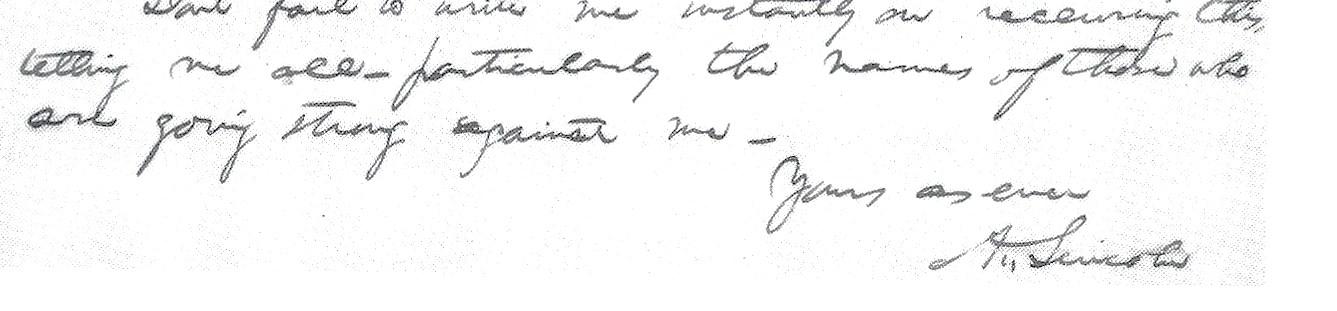 Dont fail to write me instantly on receiving this,
telling me all — particularly the names of those who
are going strong against me —
Yours as ever
A. Lincoln